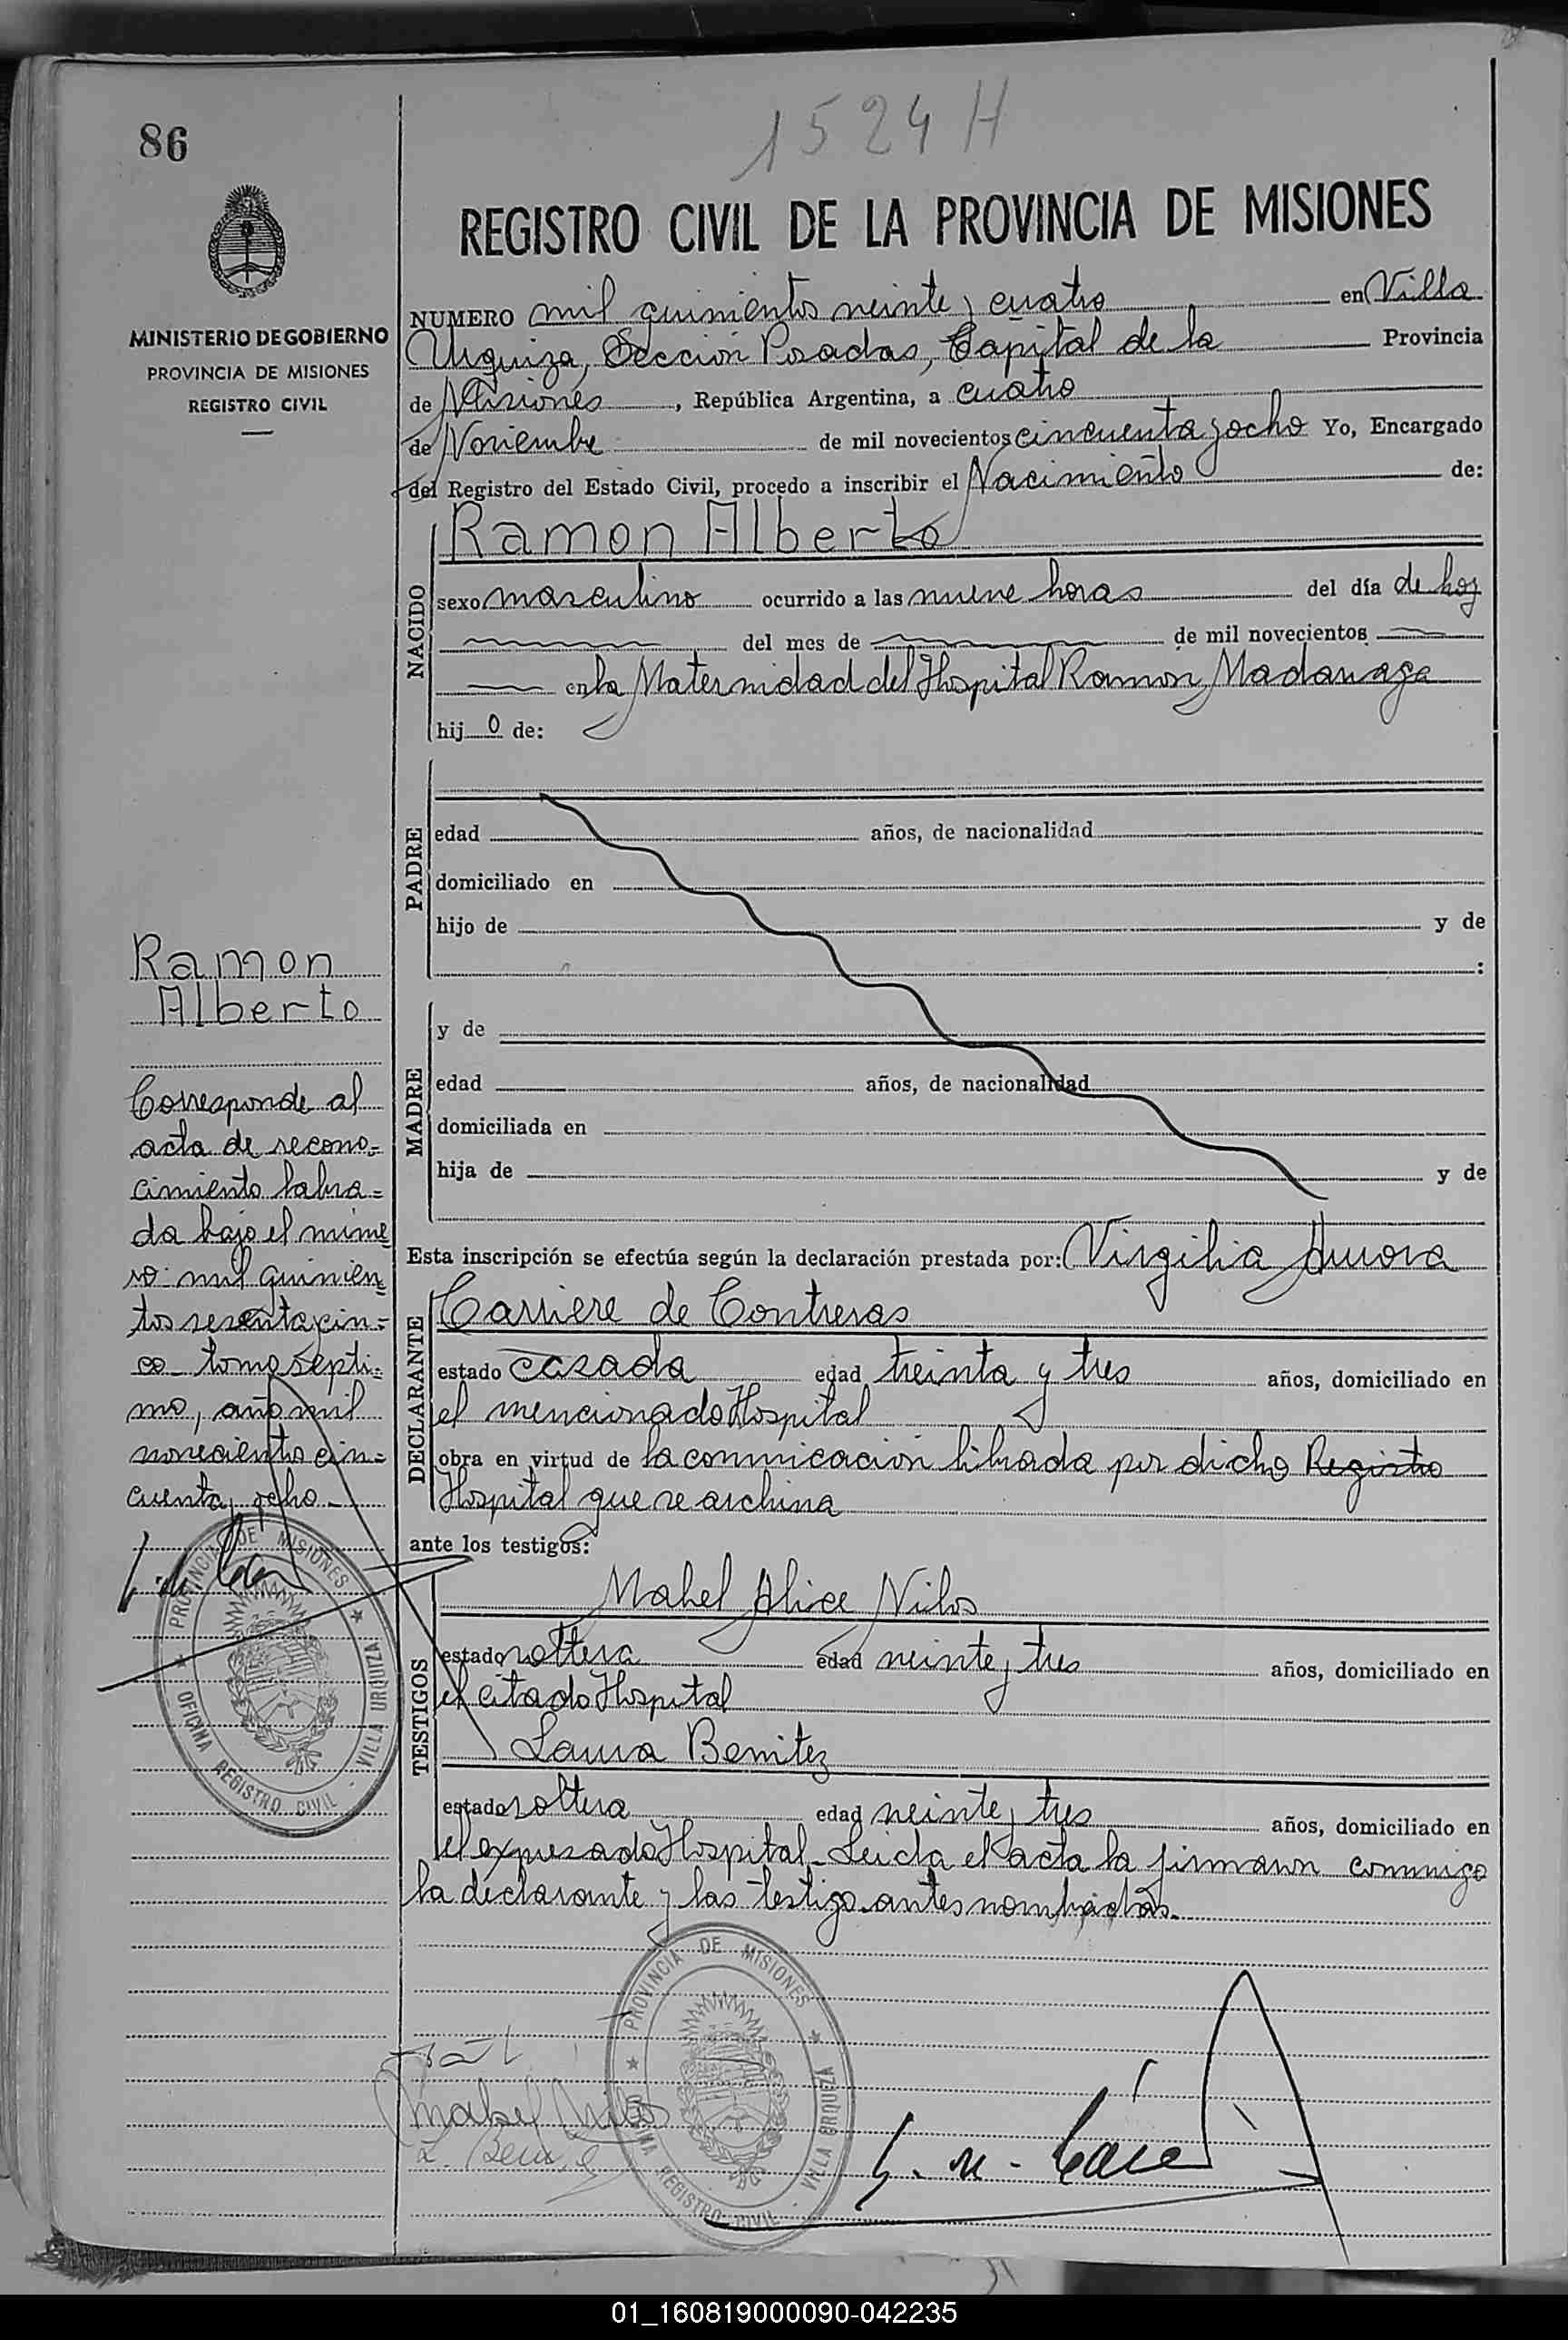 1524 H
86
MINISTERIO DE GOBIERNO
PROVINCIA DE MISIONES
REGISTRO CIVIL
REGISTRO CIVIL DE LA PROVINCIA DE MISIONES
NUMERO mil quinientos veinte y cuatro en Villa
Urquiza, Sección Posadas, Capital de la Provincia
de Misiones, República Argentina, a cuatro
de Noviembre de mil novecientos cincuenta y ocho Yo, Encargado
del Registro del Estado Civil, procedo a inscribir el Nacimiento de:
NACIDO
Ramon Alberto
sexo masculino ocurrido a las nueve horas del día de hoy
del mes de de mil novecientos
en la Maternidad del Hospital Ramon Madariaga
hij o de:
PADRE
edad años, de nacionalidad
domiciliado en
hijo de y de
:
MADRE
y de
edad años, de nacionalidad
domiciliada en
hija de y de
Esta inscripción se efectúa según la declaración prestada por: Virgilia Aurora
DECLARANTE
Carriere de Contreras
estado casada edad treinta y tres años, domiciliado en
el mencionado Hospital
obra en virtud de la comunicación librada por dicho Registro
Hospital que se archiva
ante los testigos:
TESTIGOS
Mabel Alice
estado soltera edad veinte y tres años, domiciliado en
el citado Hospital
Laura Benitez
estado soltera edad veinte y tres años, domiciliado en
el expresado Hospital. Leida el acta la firmaron conmigo
la declarante y las testigo antes nombradas.
Ramon
Alberto
Corresponde al
acta de recono=
cimiento labra=
da bajo el núme
ro mil quinien
tos sesenta y cin=
co tomo septi=
mo, año mil
novecientos cin=
cuenta y ocho.
PROVINCIA DE MISIONES
OFICINA REGISTRO CIVIL - VILLA URQUIZA
PROVINCIA DE MISIONES
OFICINA REGISTRO CIVIL - VILLA URQUIZA
Mabel
01_160819000090-042235